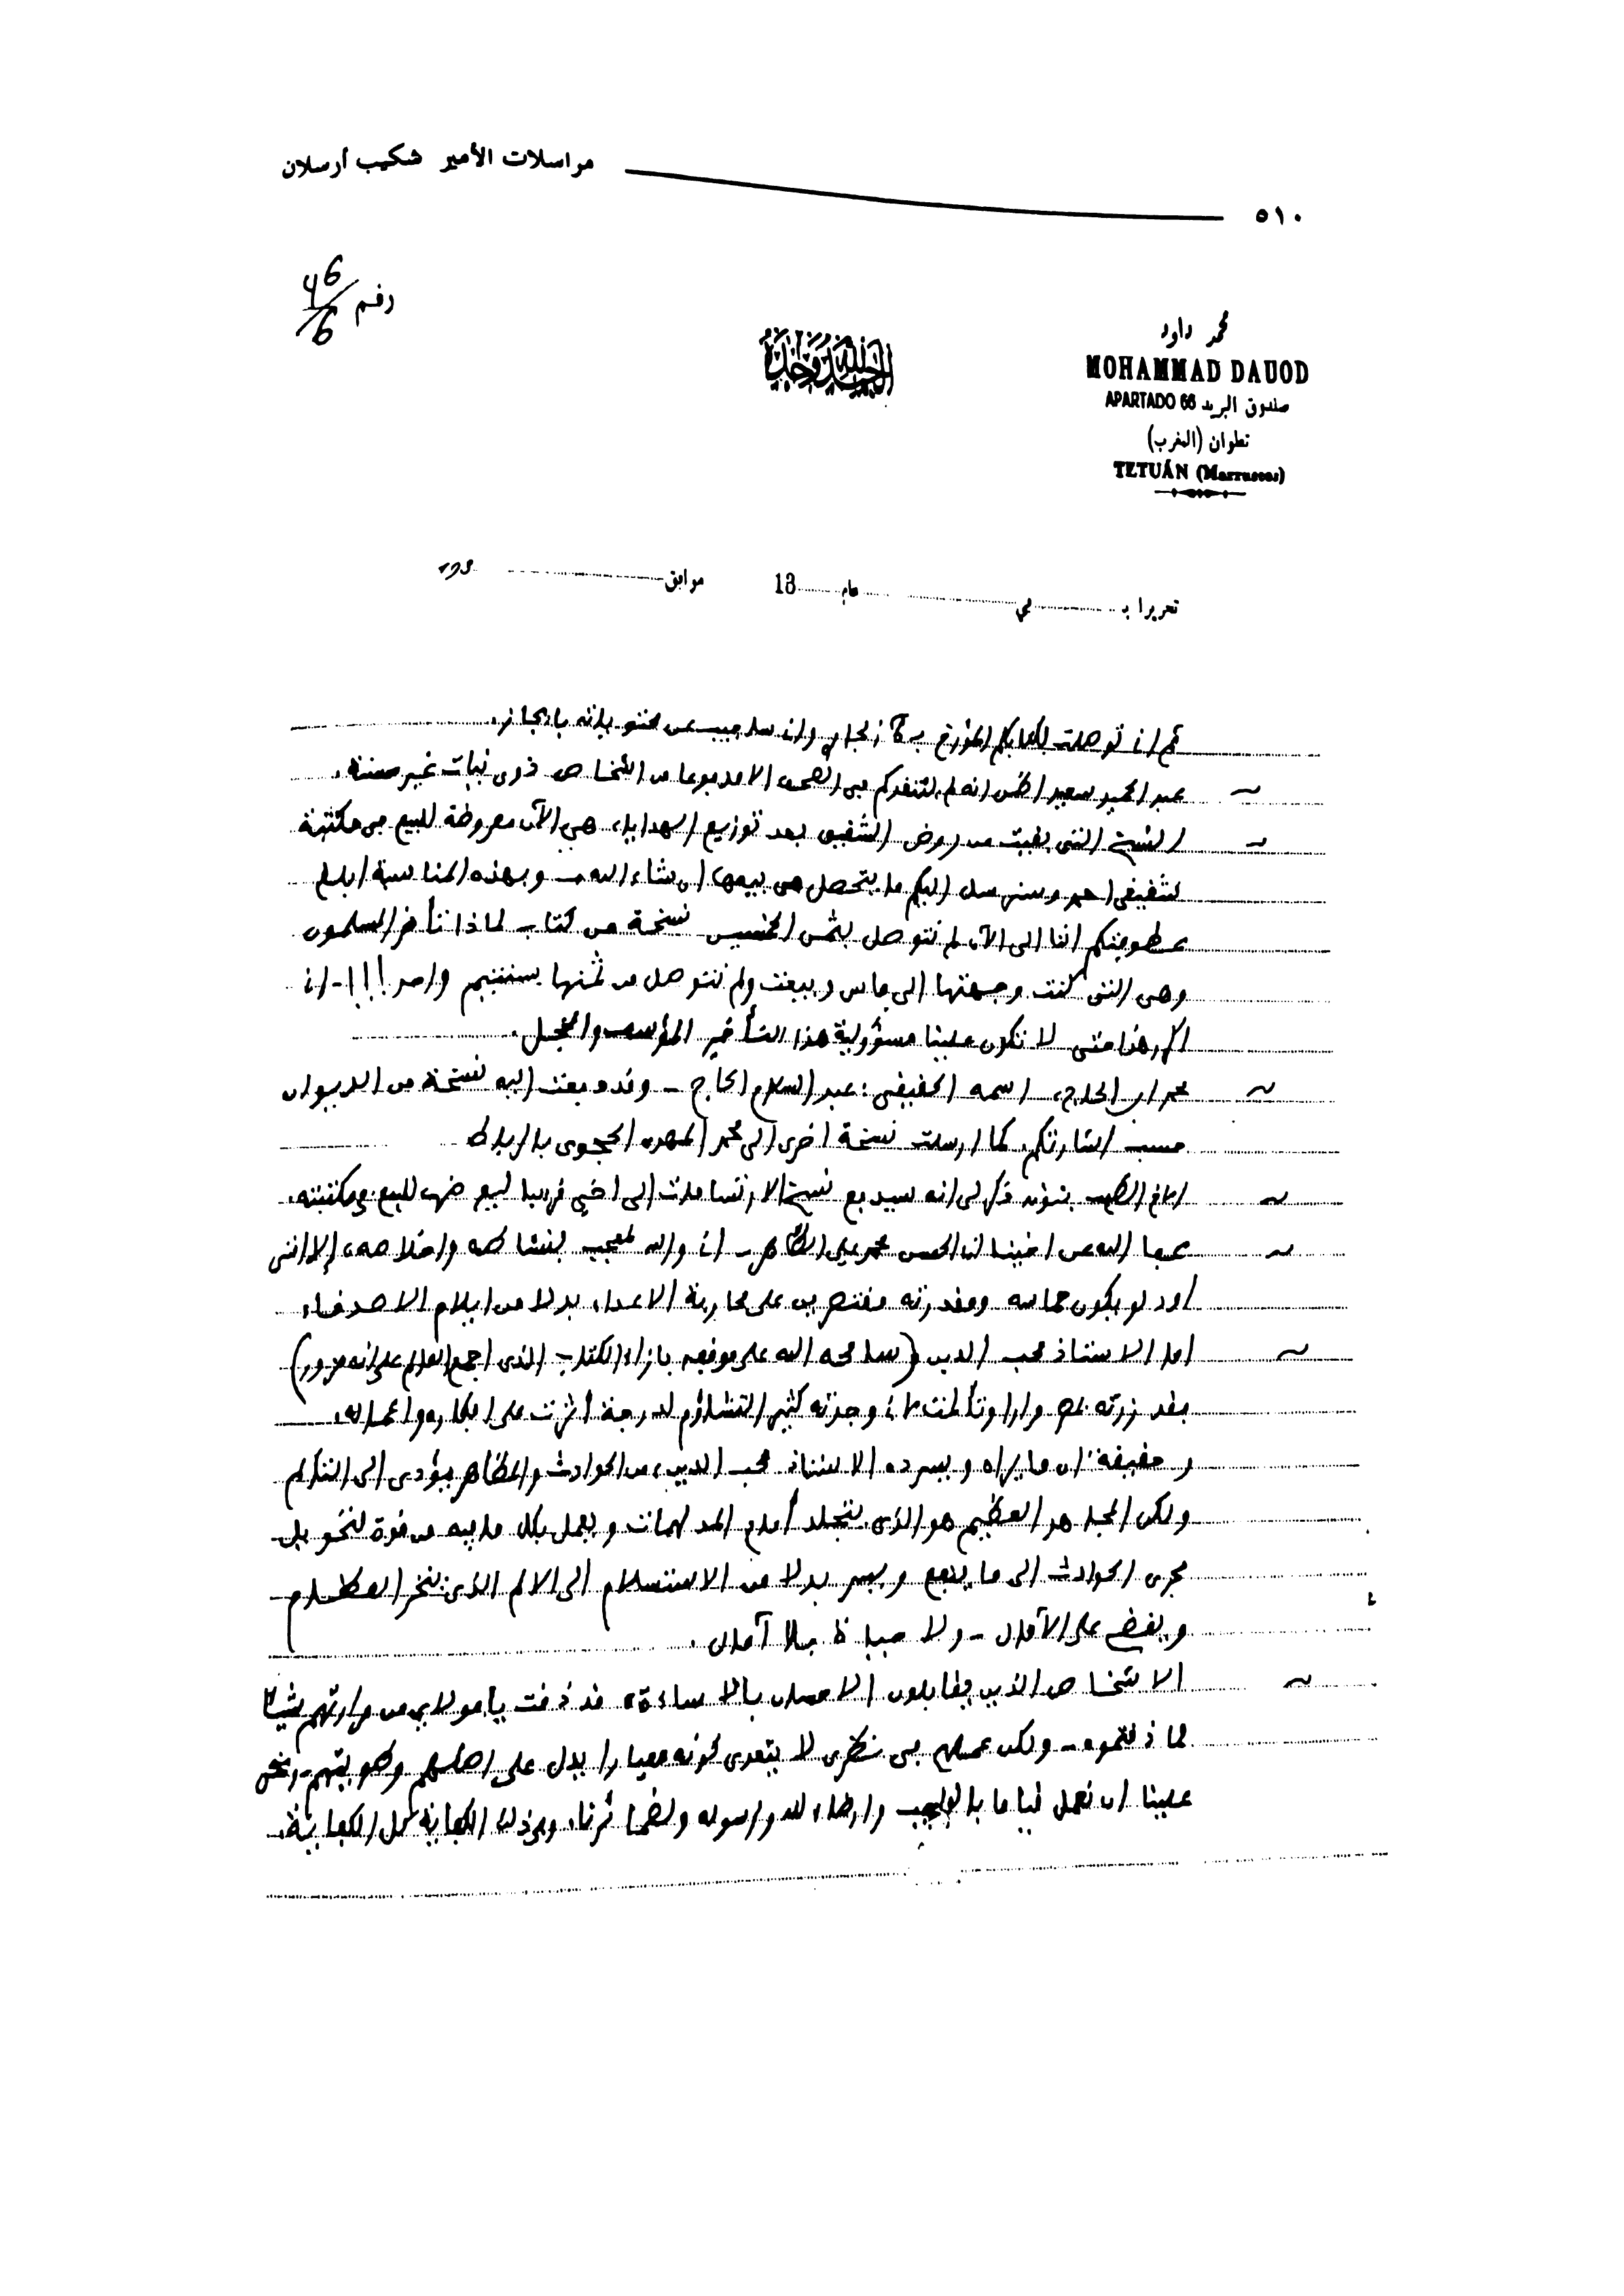 مراسلات الأمير شكيب أرسلان
٥١٠
رقم 46/6
محمد داود
MOHAMMAD DAUOD
صندوق البريد APARTADO 66
تطوان (المغرب)
TETUÁN (Marruecos)
الحمد لله وحده
تحريرا بـ في عام 13 موافق 193
ثم انى توصلت بكتابكم المؤرخ بـ الجارى وانى سأجيب عن محتوياته بايجاز.
~ عبد الحميد سعيد اظن انه لم ينتقدكم فى الصحف الا مدفوعا من اشخاص ذوى نيات غير حسنة.
~ النسخ التى بقيت من روض الشقيق بعد توزيع الهدايا، هي الآن معروضة للبيع فى مكتبة
شقيقى احمد وسنرسل اليكم ما يتحصل من بيعها ان شاء الله ـ وبهذه المناسبة ابلغ
عطوفتكم اننا الى الآن لم نتوصل بثمن الخمسين نسخة من كتاب لماذا تأخر المسلمون
وهى التى كنت وجهتها الى فاس وبيعت ولم نتوصل من ثمنها بسنتيم واحد!!! ـ انى
الا هذا حتى لا تكون علينا مسؤولية هذا التأخير المؤسف والمخجل.
~ اسمه الحقيقى: عبد السلام الحاج ـ وقد بعثت اليه نسخة من الديوان
حسب اشارتكم، كما ارسلت نسخة اخرى الى محمد المهدى الحجوى بالرباط
~ ذكر لى انه سيدفع نسخ الارتسامات الى اخى قريبا ليعرضها للبيع فى مكتبته.
~ عفا الله عن اخينا ابى الحسن محمد على الطاهر ـ انى والله لمعجب بنشاطه واخلاصه، إلا اننى
اود لو يكون حماسه ومقدرته مقتصرين على محاربة الاعداء بدلا من ايلام الاصدقاء
~ اما الاستاذ محب الدين (سامحه الله على موقفه بازاء الكتاب الذى اجمع العالم على انه مزور)
فقد زرته بمصر مرارا وتألمت لانى وجدته كثير التشاؤم لدرجة أثرت على افكاره واعماله،
وحقيقة ان ما يراه ويسرده الاستاذ محب الدين، من الحوادث والمظاهر يؤدى الى التألم
ولكن المجاهد العظيم هو الذى يتجلد أمام المدلهمات ويعمل بكل ما فيه من قوة لتحويل
مجرى الحوادث الى ما ينفع ويسر بدلا من الاستسلام الى الالم الذى ينخر العظام
ويقضى على الآمال ـ ولا حياة بلا آمال.
~ الاشخاص الذين يقابلون الاحسان بالاساءة، قد ذقت يا مولاي من مرارتهم شيئا
مما ذقتموه ـ ولكن عملهم فى نظرى لا يتعدى كونه معيارا يدل على اصلهم وطويتهم ـ ونحن
علينا ان نعمل قياما بالواجب وارضاء لله ولرسوله ولضمائرنا، وفى ذلك الكفاية كل الكفاية.